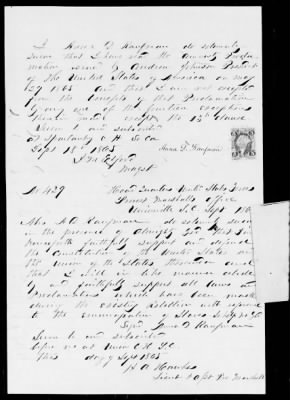 I Isaac D Kaufman do solemnly
swear that I have read the Amnesty Procla-
mation issued by Andrew Johnson President
of the United States of America on May
29 1865 and that I am not excepted
from the benefits of that Proclamation
by any one of the fourteen exceptions
therein made except the 13th clause
Sworn to and subscribed
at C H So Ca
Sept 18th 1865
Magst
No 429
Head Quarters United States Forces
Provost Marshalls Office
Unionville S.C. Sept 186
do solemnly swear
in the presence of Almighty God that I will
henceforth faithfully support and defend
the Constitution of the United States and
the Union of the States thereunder and
that I will in like manner abide
by and faithfully support all laws and
Proclamations which have been made
during the existing rebellion with reference
to the emancipation of Slaves So help me God
Sign D Kaufman
Sworn to and subscribed
before me at Union C.H. S.C.
This day of Sept 1865
Lieut & Asst Pro Marshall